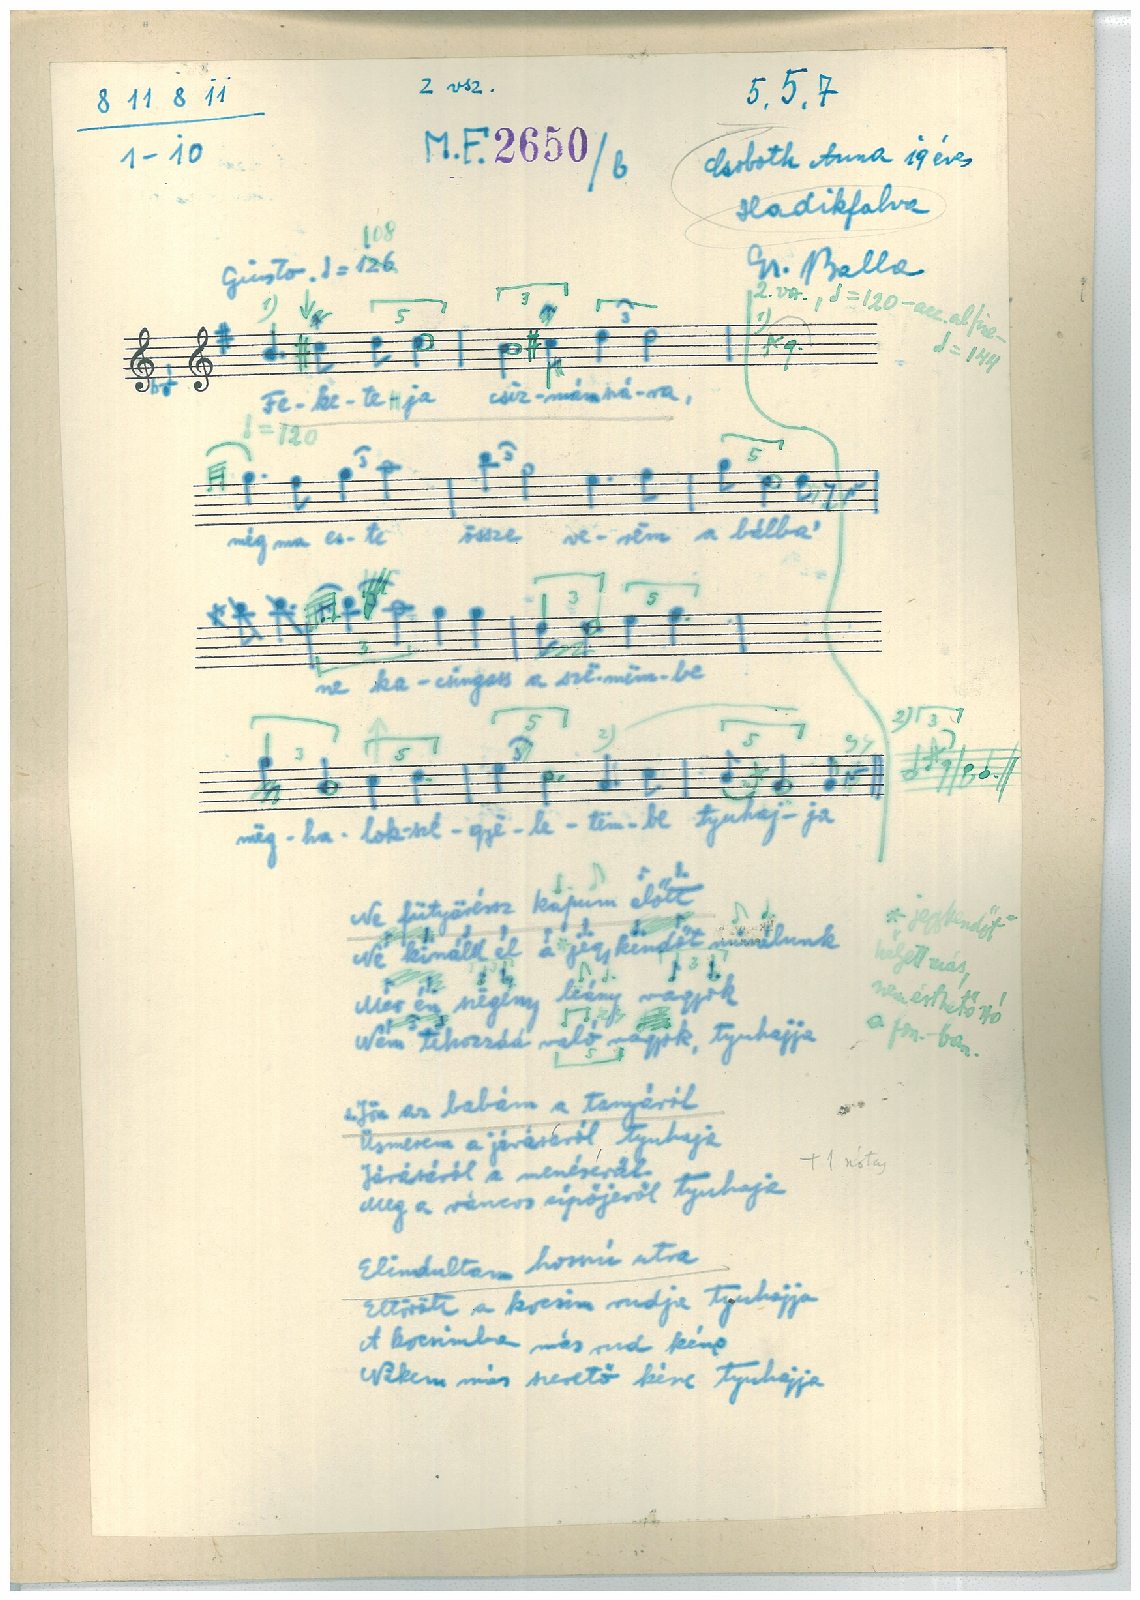 8 11 8 11
2 vsz.
5. 5. 7
1 - 10
M.F. 2650/b
Csoboth Anna 19 éves
Hadikfalva
Gr. Balla
108
Giusto. = 126
2. vsz., = 120
= 144
1) 5 3 3 1)
Fe - ke - te - ja csiz - mám
= 120
3 3 5
még ma es - te össze ve - rëm a bálba'
3 3 5
ne ka - csingass a szë - mëm - be
3 5 5 3 2) 5 2) 3
mëg - ha - lok - szé - gyë - le - tëm - be tyuhaj - ja
Ne fütyöréssz kapum előtt
Ne kináld el a jégykendőt nálunk
Mer én szegény leány vagyok
Nem tehozzád való vagyok, tyuhajja
* jegykendőt
helyett más,
nem érthető szó
a fon.-ban.
5
Jön az babám a tanyáról
Üsmerem a járásáról tyuhaja
Járásáról a menésérül
Meg a ráncos cipőjéről tyuhaja
+ 1 nótas
Elindultam hosszú utra
Eltörött a kocsim rudja tyuhajja
A kocsimba más rud kéne
Nekem más szerető kéne tyuhajja